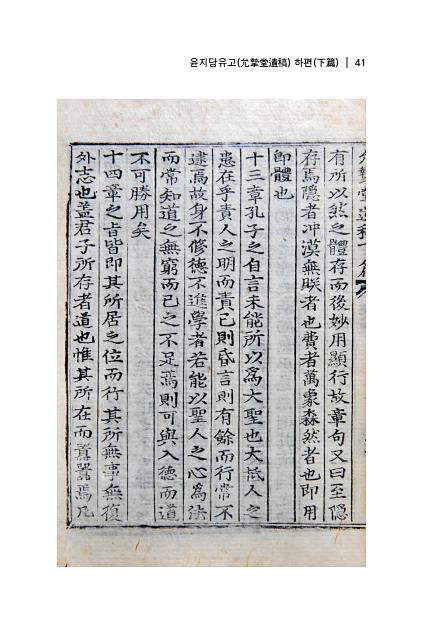 윤지당유고(允摯堂遺稿) 하편(下篇) | 41
有所以然之體存而後妙用顯行故章句又曰至隱
存焉隱者冲漠無眹者也費者萬象森然者也即用
即體也
十三章孔子之自言未能所以爲大聖也大抵人之
患在乎責人之明而責已則昏言則有餘而行常不
逮焉故身不修德不進學者若能以聖人之心爲法
而常知道之無窮而已之不足焉則可與入德而道
不可勝用矣
十四章之旨皆即其所居之位而行其所無事無復
外志也盖君子所存者道也惟其所在而囂囂焉凡